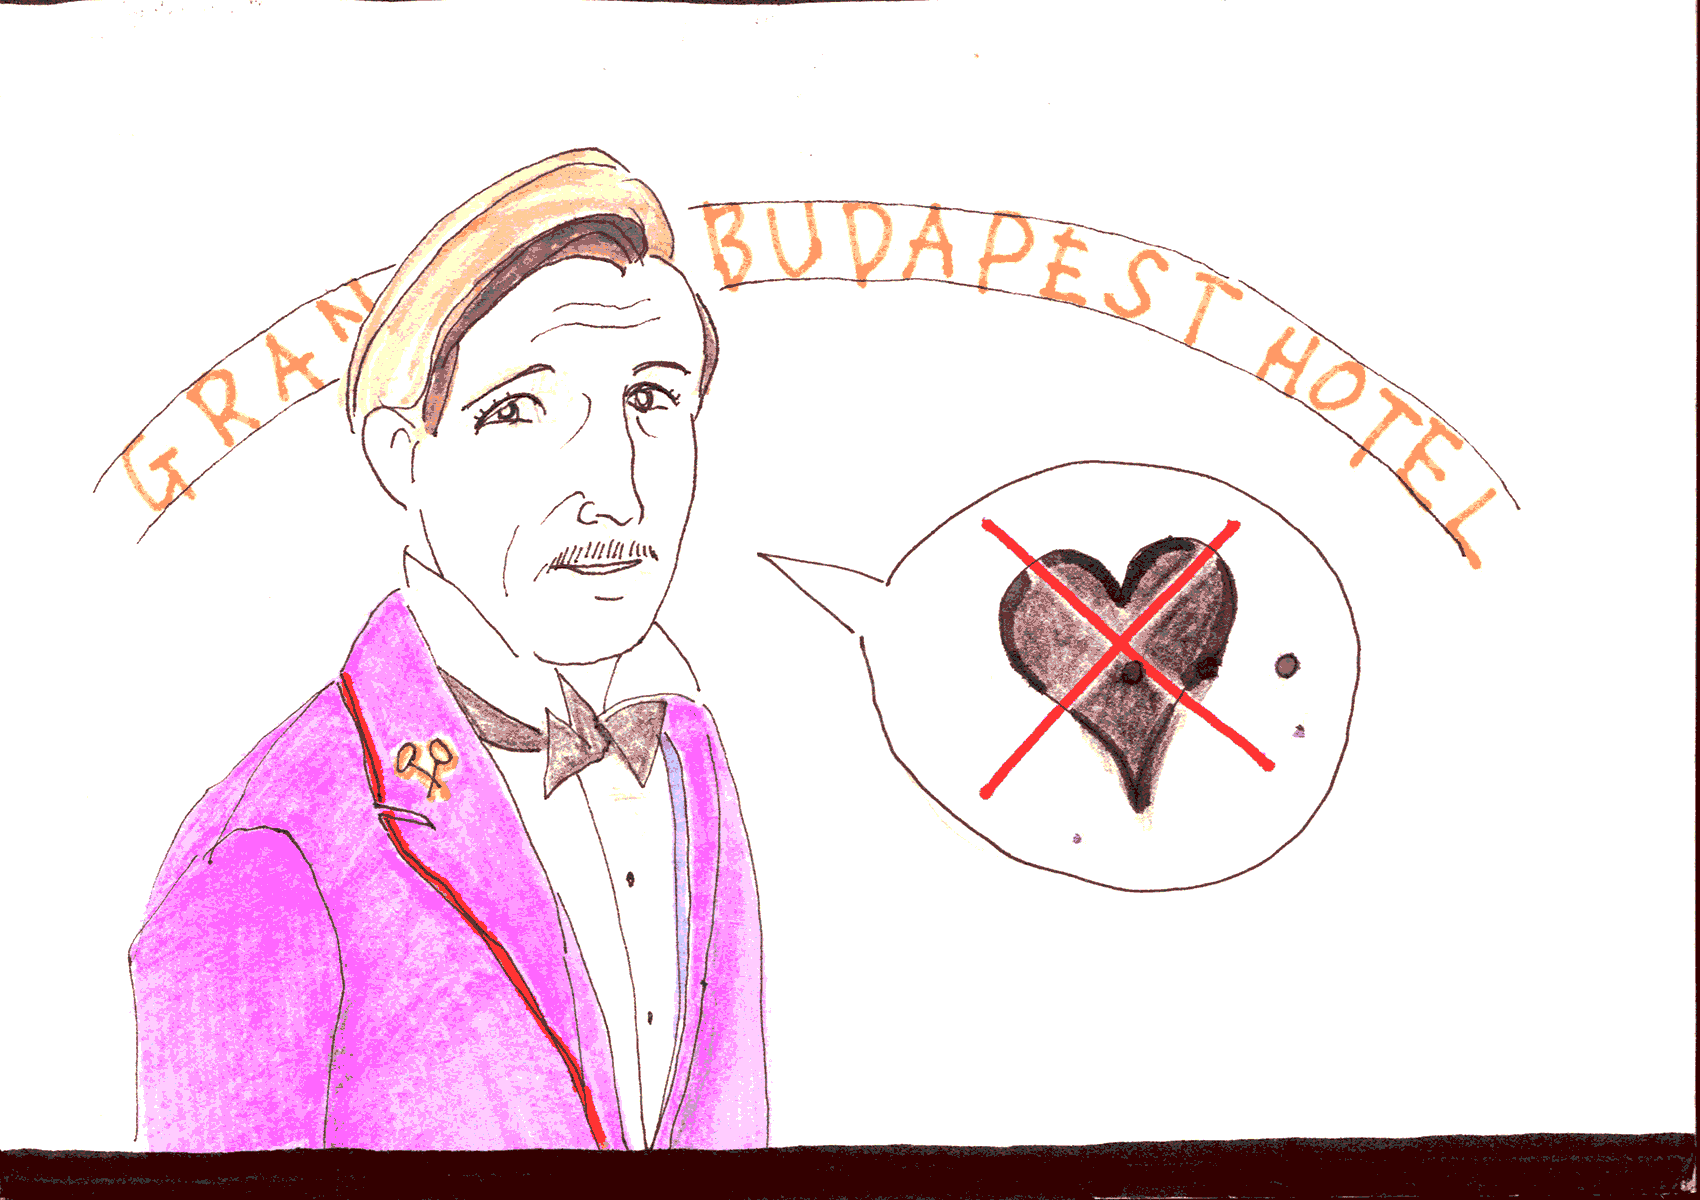 GRAN BUDAPEST HOTEL